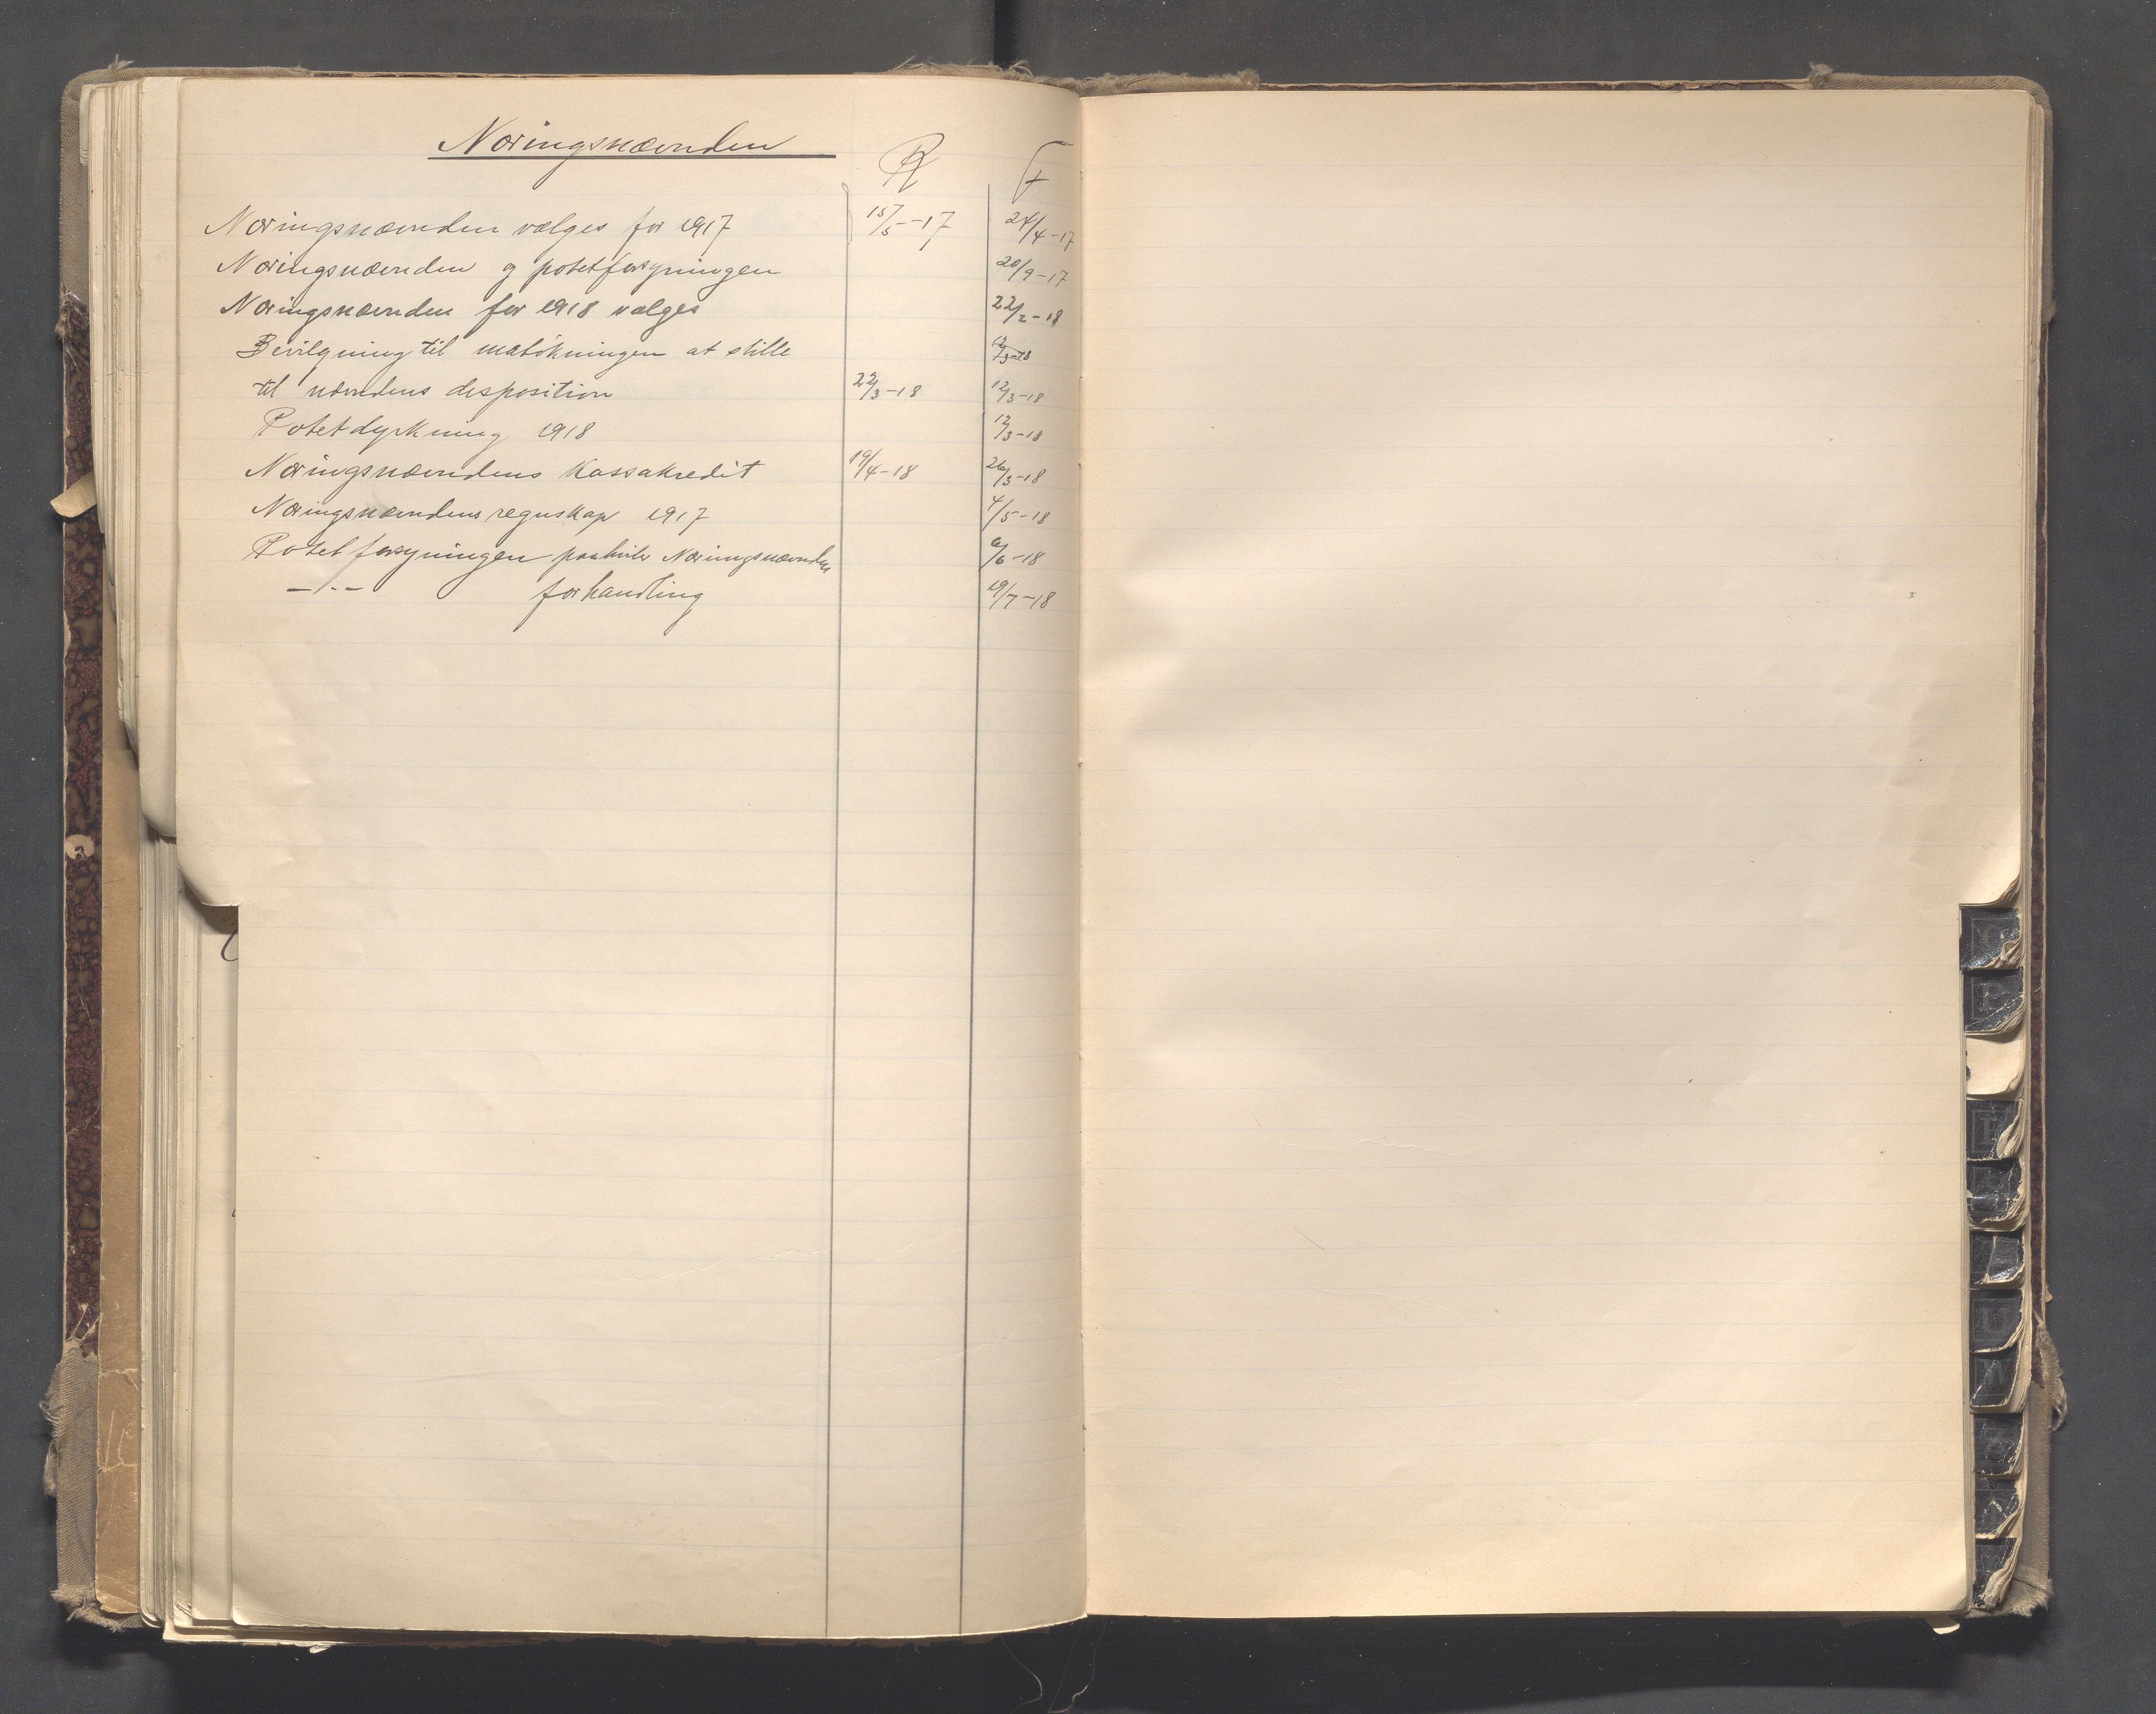 Næringsnævnden
R F
Næringsnævnden vælges for 1917 15/5-17 24/4-17
Næringsnævnden og potetforsyningen 20/9-17
Næringsnævnden for 1918 vælges 22/2-18
Bevilgning til matökningen at stille 12/3-18
til nævndens desposition 22/3-18 12/3-18
Potetdyrkning 1918 12/3-18
Næringsnævndens Kassakredit 19/4-18 26/3-18
Næringsnævndens regnskap 1917 4/5-18
Potetforsyningen paahviler Næringsnævnden 6/6-18
-„- forhandling 19/7-18